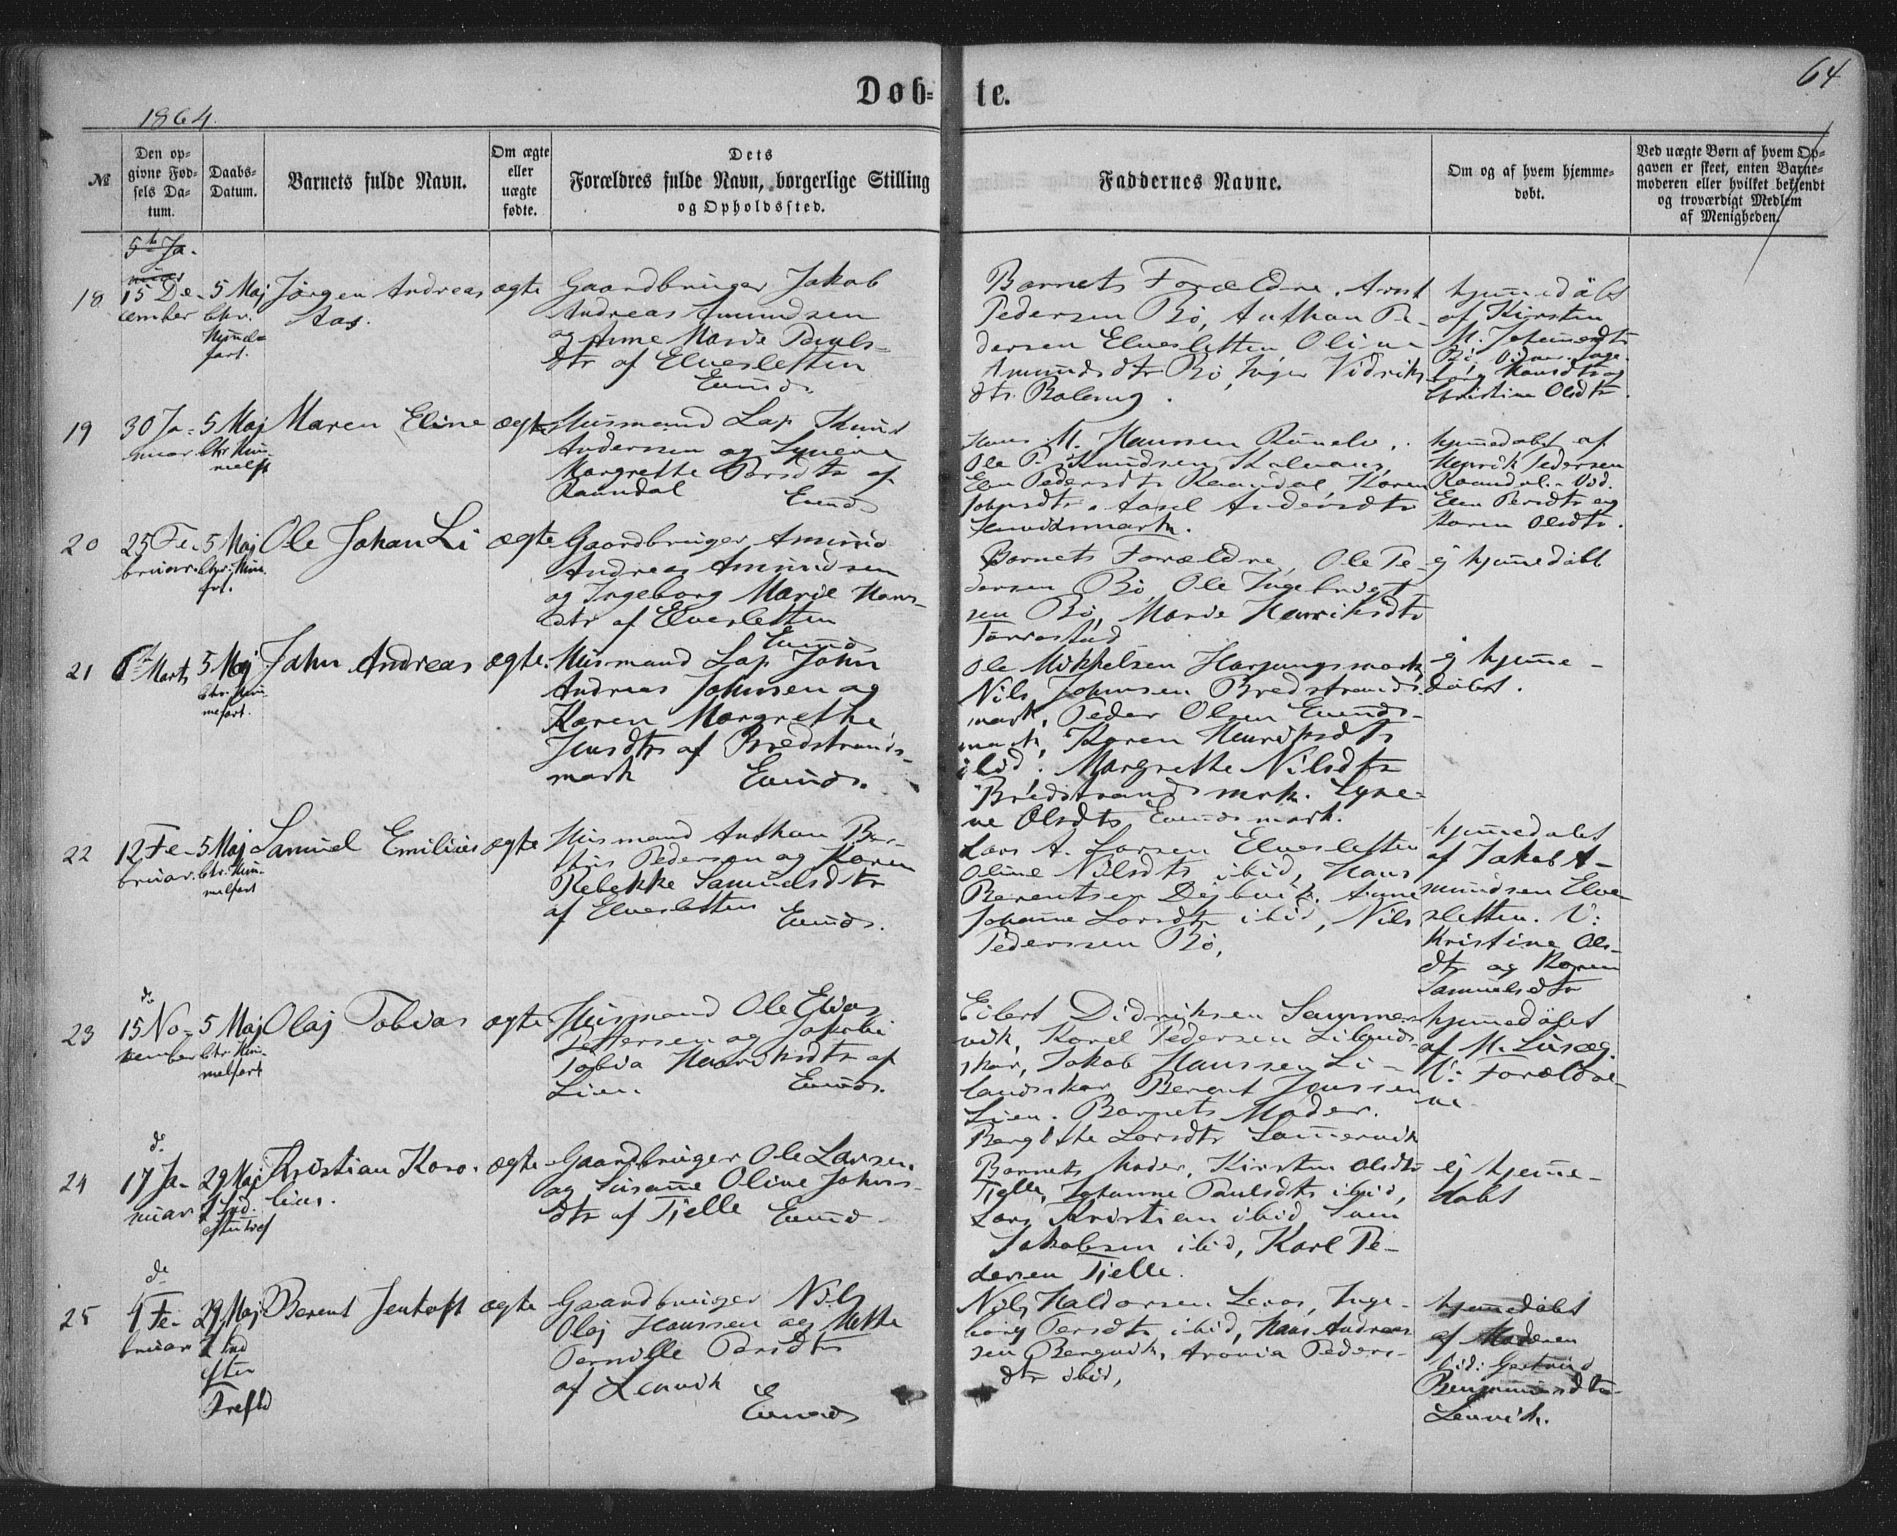 Døb-te.
64
1864.
№
Den op-
givne Fød-
sels Da-
tum.
Daabs-
Datum.
Barnets fulde Navn.
Om ægte
eller
uægte
fødte.
Dets
Forældres fulde Navn, borgerlige Stilling
og Opholdssted.
Faddernes Navne.
Om og af hvem hjemme-
døbt.
Ved uægte Børn af hvem Op-
gaven er skeet, enten Barne-
moderen eller hvilket bekjendt
og troværdigt Medlem
af Menigheden.
18
15 De-
cember
5 Maj
Chr.
Himmel-
fart.
Jørgen Andreas
Aas.
ægte
Gaardbruger Jakob
Andreas Amundsen
og Anne Marie Pauls-
dtr af Elvesletten
Evends
Barnets Forældre, Arnt
Pedersen Bö, Anthon Pe-
dersen Elvesletten Oline
Amundsdtr Bö, Inger Vidriks
dtr
hjemmedöbt
af Kirsten
M.
Bö
Hansdtr og
Christine Olsdtr.
19
30 Ja-
nuar
5 Maj
Chr Him-
melft
Maren Eline
ægte
Husmand Lap Knud
Anderssen og
Margrethe Persdtr af
Raundal
Evends
Hans M. Hanssen
Ole P. Knudsen
Elen Pedersdtr Raandal, Karen
Johnsdtr. Andersdtr
hjemmedöbt af
Henrik Pedersen
Raandal. Vid.
Elen Persdtr og
Karen Olsdtr.
20
25 Fe-
bruar.
5 Maj
Chr. Him.
frt.
Ole Johan Li
ægte
Gaardbruger Amund
Andreas Amundsen
og Ingeborg Marie Hans-
dtr af Elvesletten
Evends
Barnets Forældre, Ole Pe-
dersen Bö, Ole Ingebrigt-
sen Bö, Marie Henriksdtr
Tørrestad
ej hjemmedöbt
21
Marts
5 Maj
Chr. Him-
melfart.
John Andreas
ægte.
Husmand Lap John
Andreas Johnsen og
Karen Margrethe
Jensdtr af Bredstrands-
mark
Evends.
Ole Mikkelsen Harjangsmark,
Nils Johnsen Bredstrands-
mark, Peder Olsen Evends-
mark, Karen Henriksdtr
ibid. Margrethe Nilsdtr
Bredstrandsmrk.
Olsdtr Evendsmark.
ej hjemme-
döbt.
22
12 Fe-
bruar.
5 Maj
Chr. Him-
melfart
Samuel Emilius
ægte
Husmand Anthon
Pedersen og Karen
Rebekke Samuelsdtr
af Elvesletten
Evends.
Lars A. Larsen Elvesletten
Oline Nilsdtr ibid, Hans
Berentsen Dybvik, Anne
Johanne Larsdtr ibid, Nils
Pederssen Bö,
hjemmedöbt
af Jakob A-
mundsen Elve-
sletten. V:
Kristine Ols-
dtr og Karen
Samuelsdtr
23
15 No-
vember
5 Maj
Chr. Him-
melfart
Olaj Tobias
ægte
Husmand Ole Elias
og Jakobi-
Tobia Henriksdtr af
Lien.
Evends.
Eilert Didriksen Sammer-
vik, Karel Pedersen Lilands-
skar, Jakob Hanssen Li-
landsskar, Berent Jenssen
Lien. Barnets Moder.
Bergitte Larsdtr Samervik
hjemmedöbt
af M.
V: Forældre-
ne
24
17 Ja-
nuar
29 Maj
Kristian Karo-
lius.
ægte
Gaardbruger Ole Larsen
og Susanne Oline Johns-
dtr af Tjelle
Evend
Barnets Moder, Kirsten Olsdtr
Tjelle, Johanne Paulsdtr ibid,
Lars Kristian ibid,
Jakobsen ibid, Karl Pe-
dersen Tjelle.
ej hjemme-
döbt
25
4 Fe-
bruar
29 Maj
efter
Trefld
Berent Jentoft
ægte
Gaardbruger Nils
Olaj Hanssen og Mette
Pernille Persdtr
af Lenvik
Evends
Nils Haldorsen Leros, Inge-
borg Persdtr ibid, Hans Andreas
sen Bergvik, Aronia Peders-
dtr ibid,
hjemmedöbt
af Moderen
Vid: Gjertrud
Benjaminsdtr
Lenvik.